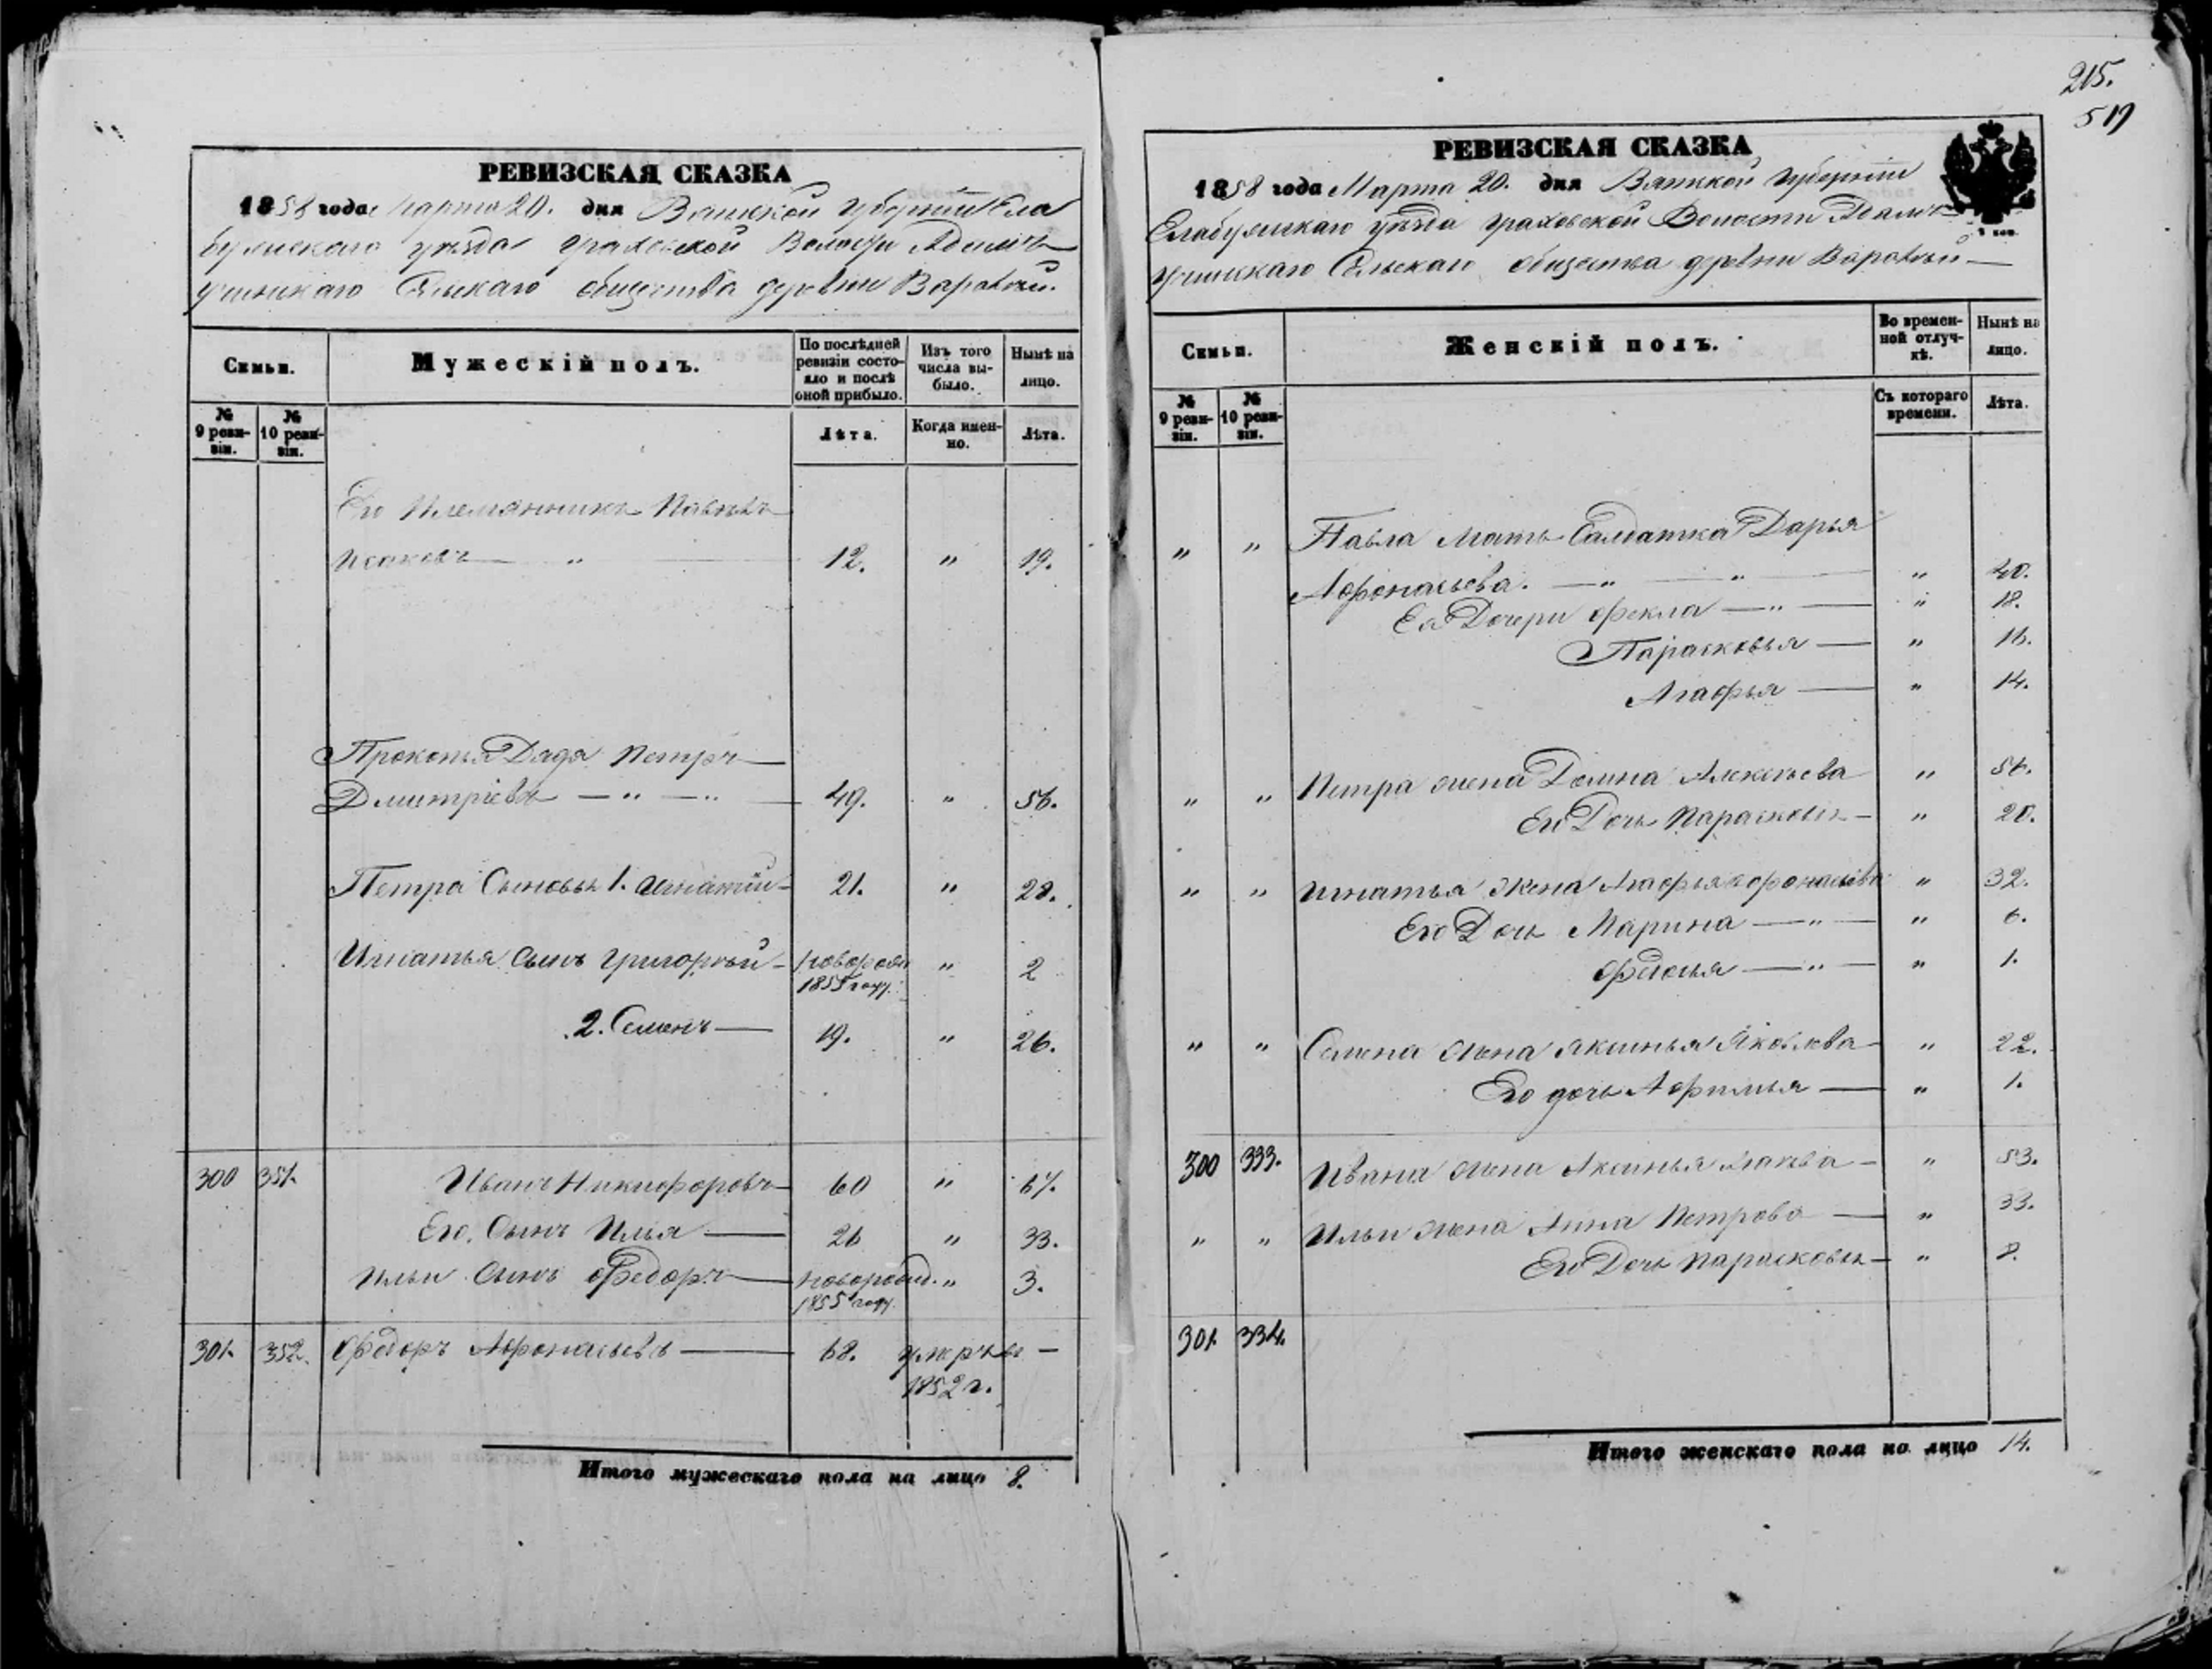 215.
519
РЕВИЗСКАЯ СКАЗКА
1858 года Марта 20. дня Вятской Губернии Ела
бужскаго уѣзда Граховской Волости Адамъ
учинскаго Сельскаго общества деревни Варавкий.
Семьи.
Мужескій полъ.
По послѣдней ревизіи состо-
яло и послѣ оной прибыло.
Изъ того числа вы-
было.
Нынѣ на лицо.
№ 9 реви-
зіи.
№ 10 реви-
зіи.
Лѣта.
Когда имен-
но.
Лѣта.
Его Племянникъ Павелъ
Исаковъ — " — 12. " 19.
Прокопья Дядя Петръ —
Дмитріевъ — " — " — 49. " 56.
Петра Сыновья 1. Игнатій — 21. " 28.
Игнатья сынъ Григорьий — новорожд. " 2
1855 году.
2. Семенъ — 19. " 26.
300 351. Иванъ Никифоровъ — 60 " 67.
Его Сынъ Илья — 26 " 33.
Ильи Сынъ Федоръ — новорожд. " 3.
1855 году.
301. 352. Федоръ Афонасьевъ — 68. умръ въ —
1852 г.
Итого мужескаго пола на лицо 8.
РЕВИЗСКАЯ СКАЗКА
1858 года Марта 20. дня Вятской Губерніи
Елабужскаго уѣзда Граховской Волости Адамъ
учинскаго Сельскаго общества деревни Варавкий —
Семьи.
Женскій полъ.
Во времен-
ной отлуч-
кѣ.
Нынѣ на лицо.
№ 9 реви-
зіи.
№ 10 реви-
зіи.
Съ котораго времени.
Лѣта.
" " Павла Мать Салдатка Дарья
Афонасьева. — " — " — " 40.
Ея Дочери Фекла — " — " 18.
Парасковья — " 16.
Агафья — " 14.
" " Петра жена Домна Алексѣева " 56.
Его Дочь Парасковья — " 20.
" " Игнатья Жена Агафья Афонасьева " 32.
Его Дочь Марина — " — " 6.
Федосья — " — " 1.
" " Семена жена Аксинья Яковлева — " 22.
Его дочь Афимья — " 1.
300 333. Ивана жена Аксинья — " 53.
" " Ильи жена Анна Петрова — " 33.
Его Дочь Парасковья — " 8.
301. 334.
Итого женскаго пола на лицо 14.